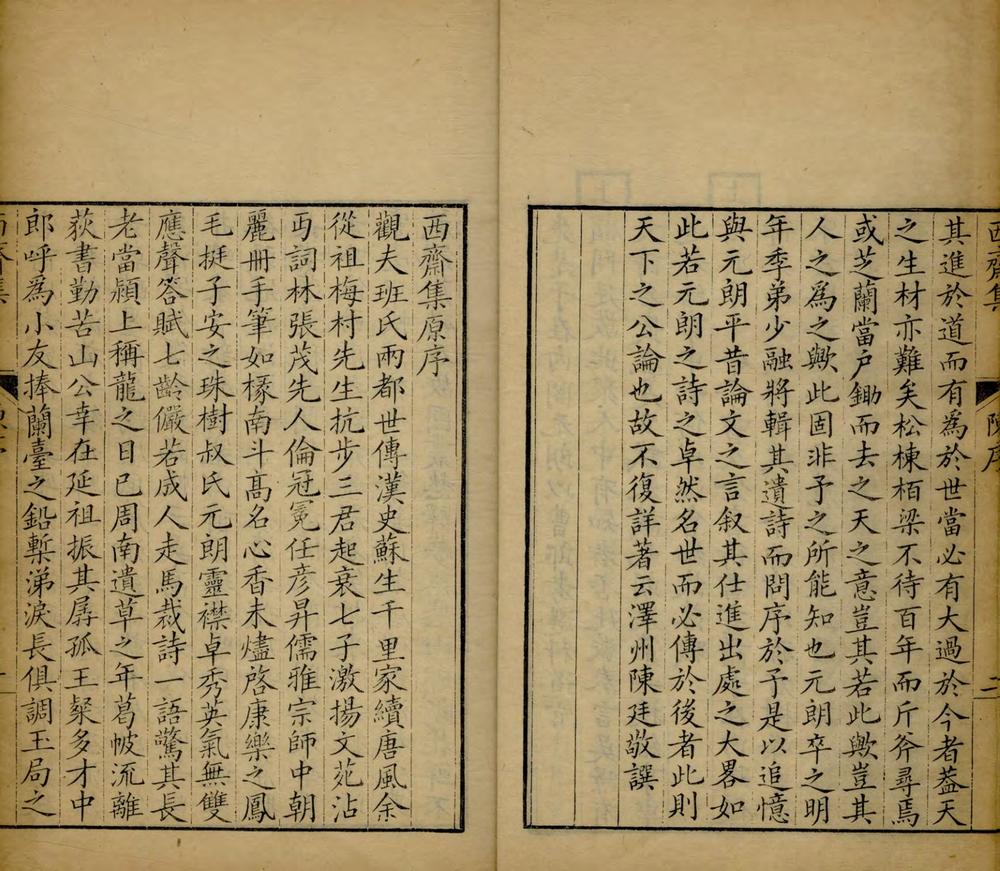 西齋集
陳序
二
其進於道而有為於世當必有大過於今者葢天
之生材亦難矣松棟栢梁不待百年而斤斧尋焉
或芝蘭當户鋤而去之天之意豈其若此歟豈其
人之為之歟此固非予之所能知也元朗卒之明
年季弟少融將輯其遺詩而問序於予是以追憶
與元朗平昔論文之言叙其仕進出處之大畧如
此若元朗之詩之卓然名世而必傳於後者此則
天下之公論也故不復詳著云澤州陳廷敬譔
西齋集原序
觀夫班氏兩都世傳漢史蘇生千里家續唐風余
從祖梅村先生抗步三君起衰七子激揚文苑沾
丏詞林張茂先人倫冠冕任彦昇儒雅宗師中朝
麗冊手筆如椽南斗高名心香未燼啓康樂之鳳
毛挺子安之珠樹叔氏元朗靈襟卓秀英氣無雙
應聲答賦七齡儼若成人走馬裁詩一語驚其長
老當潁上稱龍之日已周南遺草之年葛帔流離
荻書勤苦山公幸在延祖振其孱孤王粲多才中
郎呼為小友捧蘭臺之鉛槧涕淚長俱調玉局之